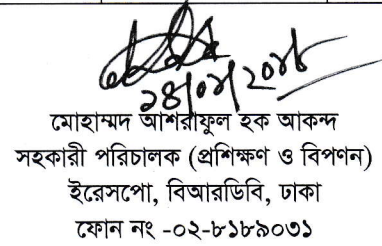 মোহাম্মদ আশরাফুল হক আকন্দ
সহকারী পরিচালক (প্রশিক্ষণ ও বিপণন)
ইরেসপো, বিআরডিবি, ঢাকা
ফোন নং -০২-৮১৮৯০৩১